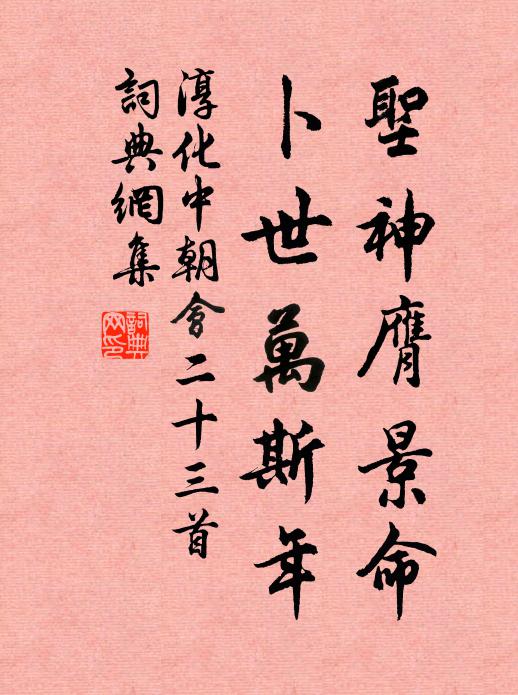 聖神膺景命
卜世萬斯年
淳化中朝會二十三首
詞典網集
詞典
网印